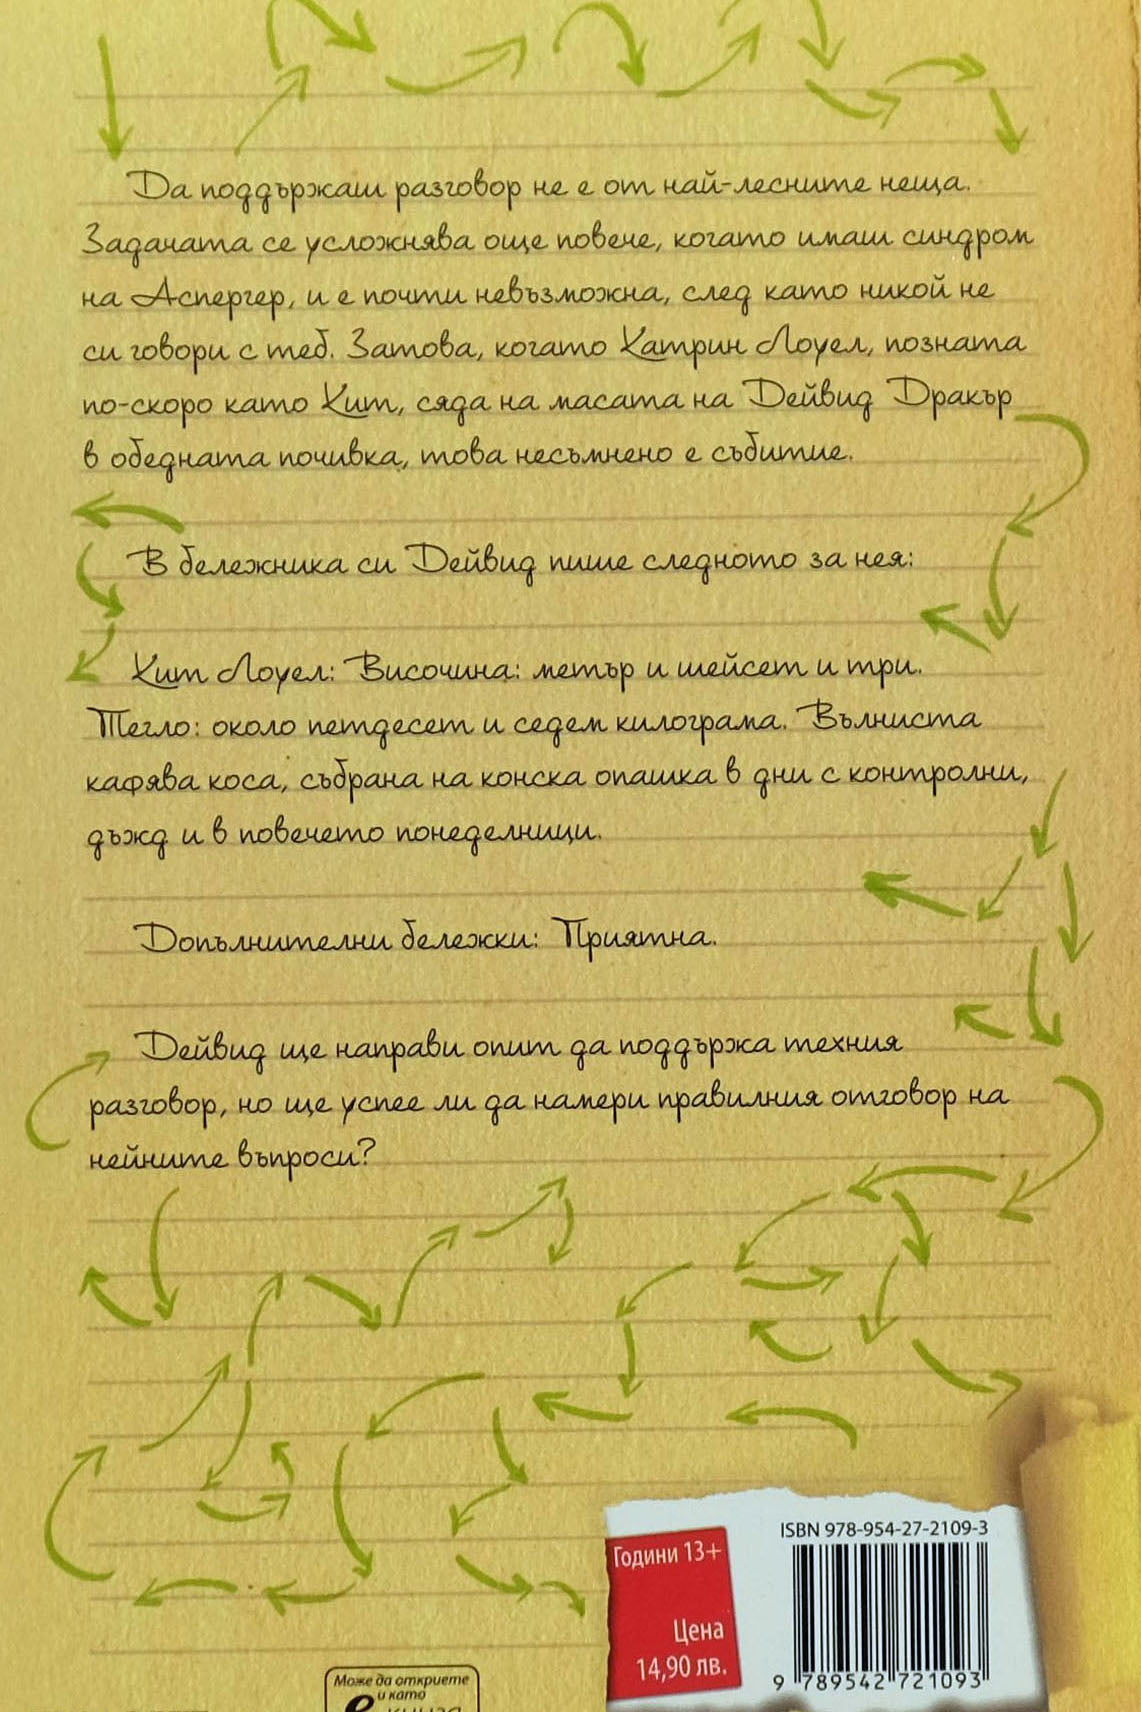 Да поддържаш разговор не е от най-лесните неща.
Задачата се усложнява още повече, когато имаш синдром
на Аспергер, и е почти невъзможна, след като никой не
си говори с теб. Затова, когато Катрин Лоуел, позната
по-скоро като Кит, сяда на масата на Дейвид Дракър
в обедната почивка, това несъмнено е събитие.
В бележника си Дейвид пише следното за нея:
Кит Лоуел: Височина: метър и шейсет и три.
Тегло: около петдесет и седем килограма. Вълниста
кафява коса, събрана на конска опашка в дни с контролни,
дъжд и в повечето понеделници.
Допълнителни бележки: Приятна.
Дейвид ще направи опит да поддържа техния
разговор, но ще успее ли да намери правилния отговор на
нейните въпроси?
ISBN 978-954-27-2109-3
Години 13+
Цена
14,90 лв.
9 789542 721093
Може да откриете
и като
е-книга